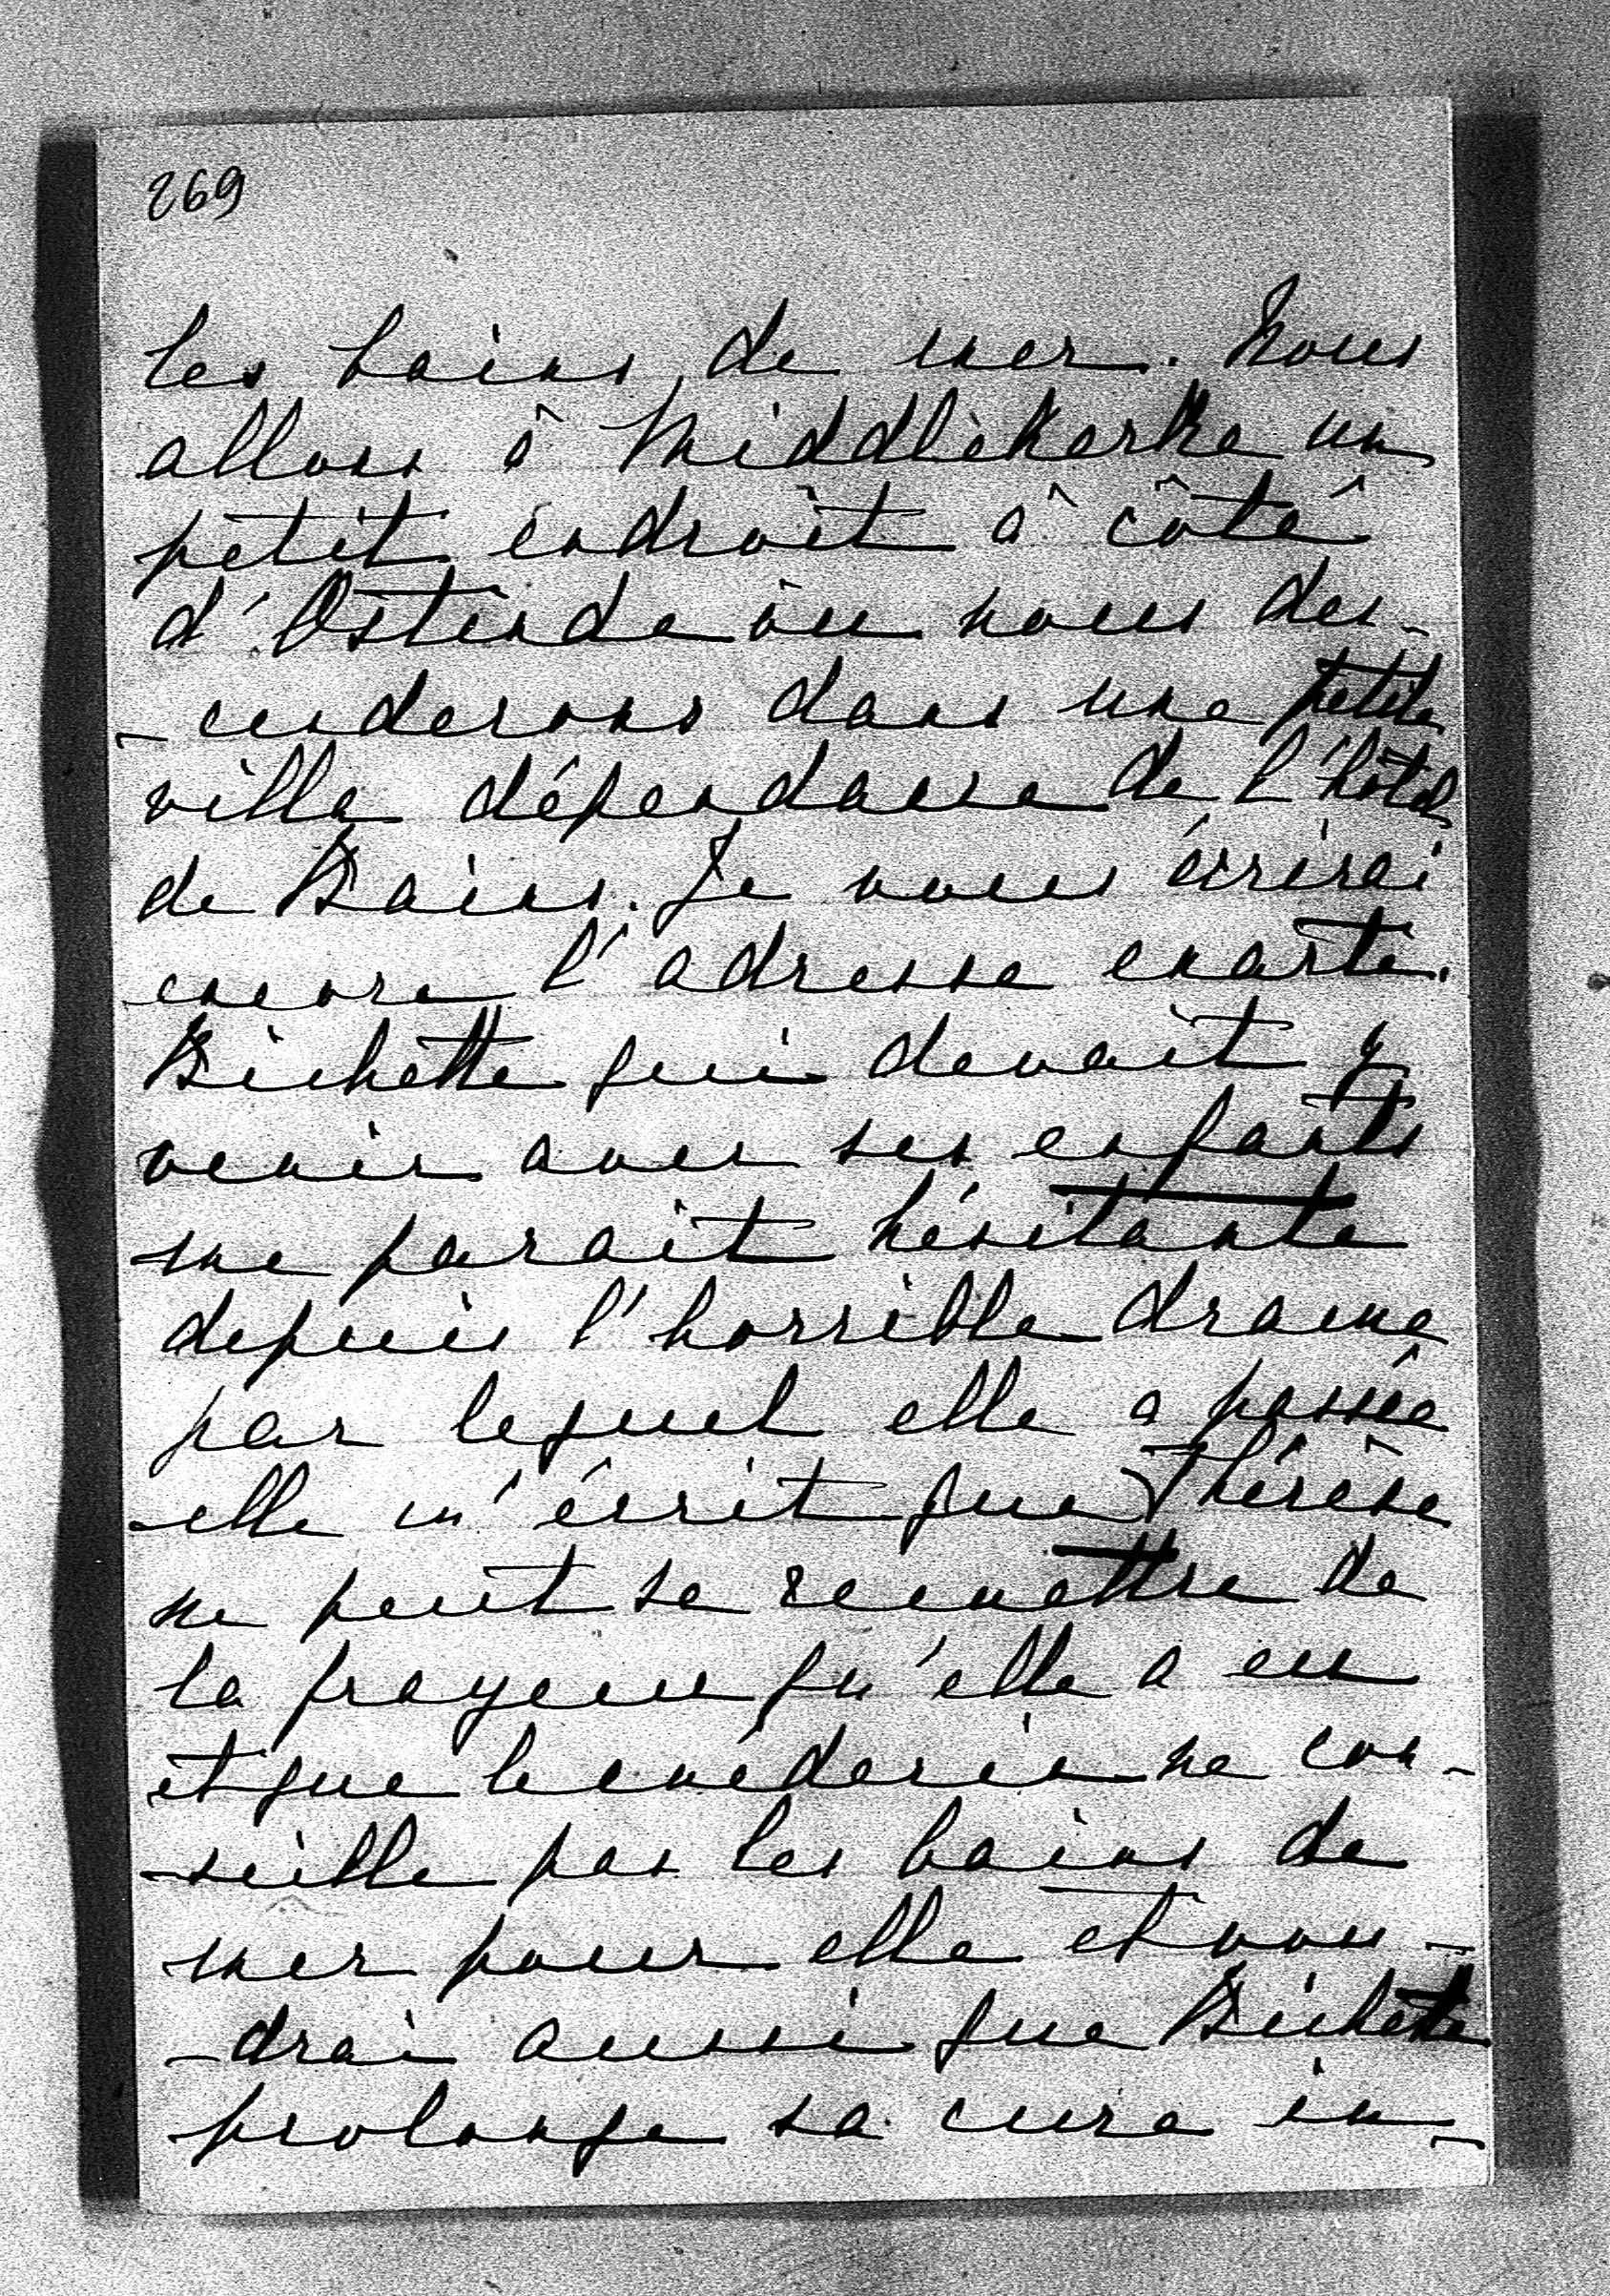 269
les bains de mer. Nous
allons à Middlekerke un
petit endroit à côté
d'Ostende où nous des-
-cenderons dans une petite
villa dépendance de l'hôtel
de Bains. Je vous écrirai
encore l'adresse exacte.
Bichette qui devait y
venir avec ses enfants
me parait hésitante
depuis l'horrible drame
par lequel elle a passée
elle m'écrit que Thérèse
ne peut se remettre de
la frayeur qu'elle a eu
et que le médecin ne con-
-seille pas les bains de
mer pour elle et vou-
-drai aussi que Bichette
prolonge sa cure in-